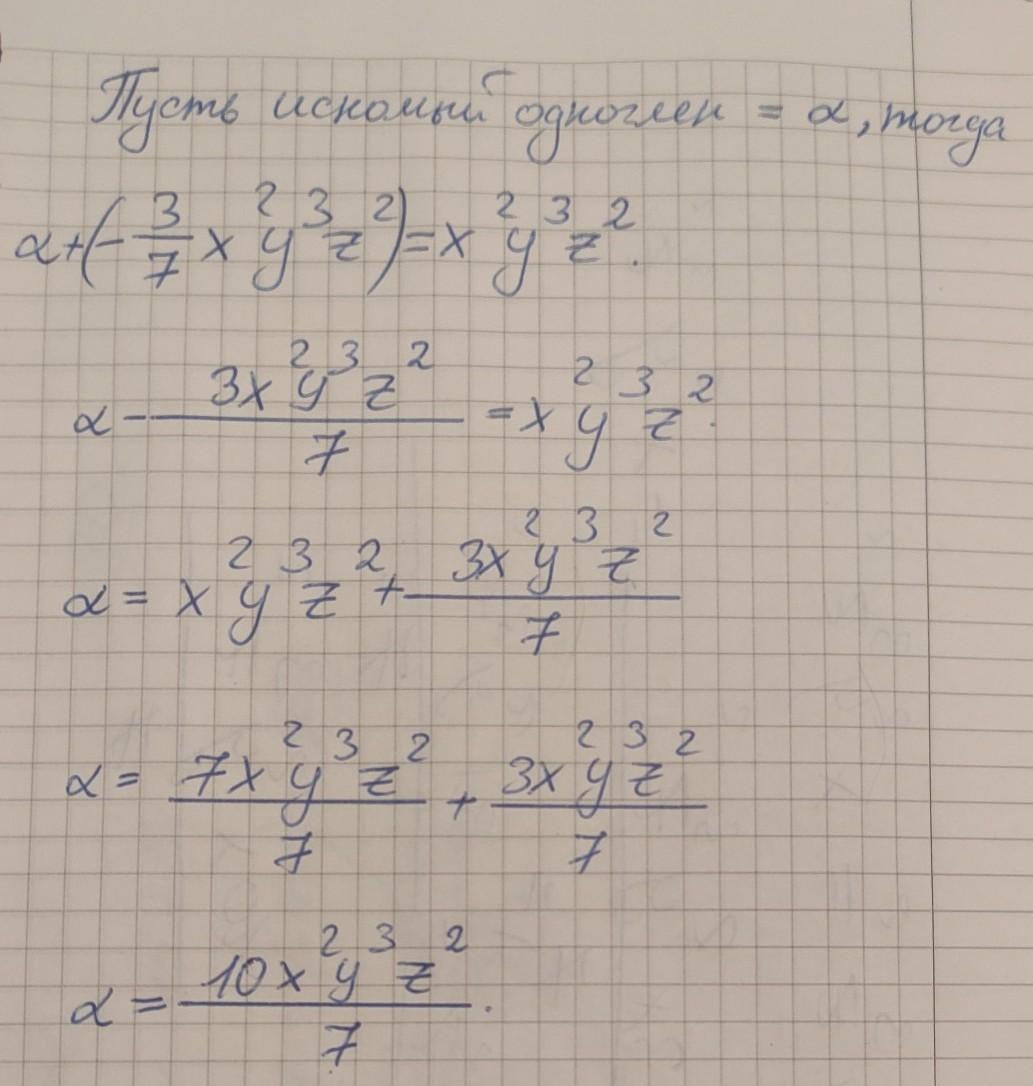 Пусть искомый одночлен = α, тогда
α+(-3/7 x²y³z²)=x²y³z².
α - 3x²y³z²/7 = x²y³z².
α = x²y³z² + 3x²y³z²/7
α = 7x²y³z²/7 + 3x²y³z²/7
α = 10x²y³z²/7.